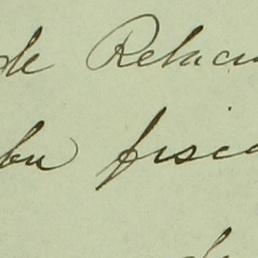 de Relaci
bu fisca